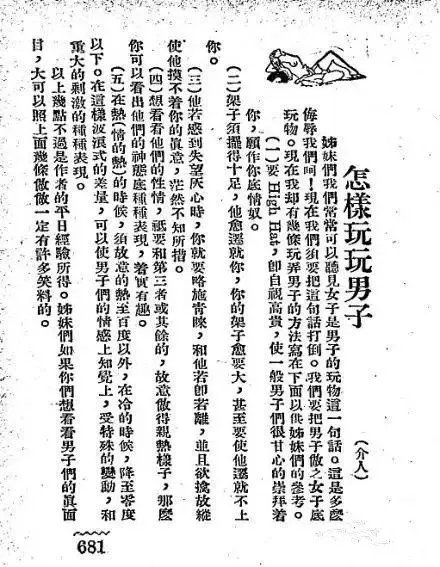 怎樣玩玩男子
(介人)
姊妹們我們常常可以聽見女子是男子的玩物這一句話。這是多麽
侮辱我們呵!現在我們須要把這句話打倒。我們要把男子做之女子底
玩物。現在我却有幾條玩弄男子的方法寫在下面以供姊妹們的參考。
(一)要High Hat,卽自視高貴,使一般男子們很甘心的崇拜着
你,願作你底情奴。
(二)架子須擺得十足,他愈遷就你,你的架子愈要大,甚至要使他遷就不上
你。
(三)他若感到失望灰心時,你就要略施青睞,和他若卽若離,並且欲擒故縱
使他摸不着你的眞意,茫然不知所措。
(四)想看看他們的性情,祇要和第三者或其餘的,故意做得親熱樣子,那麽
你可以看出他們的神態底種種表現,着實有趣。
(五)在熱(情的熱)的時候,須故意的熱至百度以外,在冷的時候,降至零度
以下。在這樣波浪式的差量,可以使男子們的情感上知覺上,受特殊的變動,和
重大的刺激的種種表現。
以上幾點不過是作者的平日經驗所得。姊妹們如果你們想看看男子們的眞面
目,大可以照上面幾條做做一定有許多笑料的。
681